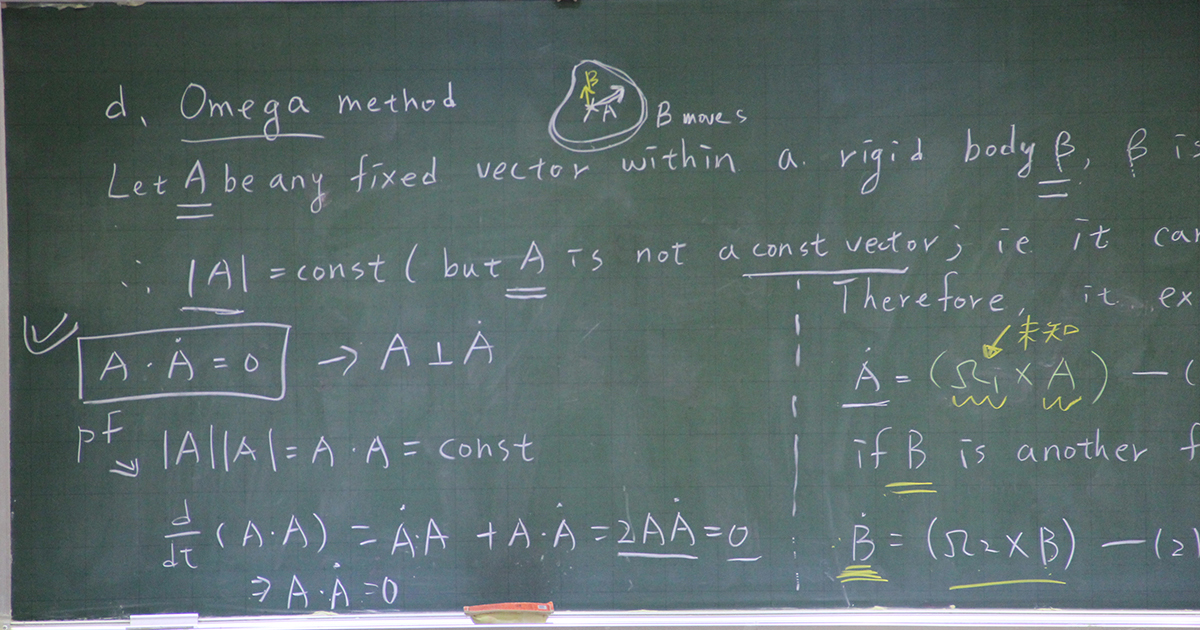 d. Omega method
B
A
B moves
Let A be any fixed vector within a rigid body β, β is
∴ |A| = const ( but A is not a const vector; ie it can
A · Ȧ = 0 → A ⊥ Ȧ
pf
|A||A| = A · A = const
d/dt (A·A) = Ȧ·A + A·Ȧ = 2AȦ = 0
⇒ A·Ȧ = 0
Therefore, it ex
未知
Ȧ = (Ω₁ × A) — (
if B is another f
Ḃ = (Ω₂ × B) — (2)